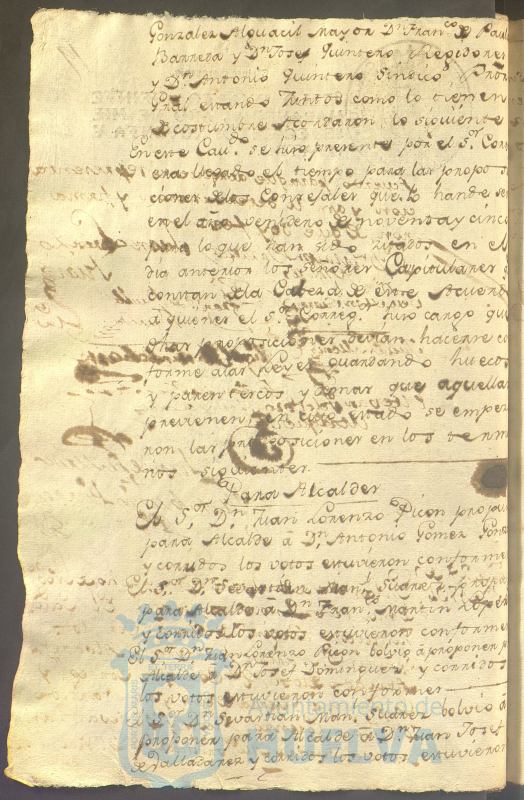 Gonzalez Alguacil Mayor Dn Franco de Paul
Barreda y Dn Josef Quintero Regidores
y Dn Antonio Quintero Sindico Pror
Gral estando Juntos como lo tienen
de costumbre Acordaron lo siguiente
En este Cavdo se hizo presente por el Sr Corr
era llegado el tiempo para las propos
ciones de los Consejales que lo han de se
en el año venidero de noventa y cinco
para lo que han sido zitados en el
dia anterior los señores Capitulares q
constan de la Caveza de este Acuerd
a quienes el Sr Correg. hizo cargo qu
dhas proposiciones devian hacerse co
forme a las Leyes guardando huecos
y parentescos y demas que aquellas
previenen en cuio estado se empez
ron las proposiciones en los termi
nos siguientes
Para Alcaldes
El Sr Dn Juan Lorenzo Picon propu
para Alcalde a Dn Antonio Gomez
y corridos los votos estuvieron conformes
El Sr Dn Sevastian Man. Suarez propu
para Alcalde a Dn Fran. Martin
y corridos los votos estuvieron conformes
El Sr Dn Juan Lorenzo Picon bolvio a proponer p
Alcalde a Dn Josef Dominguez y corridos
los votos estuvieron conformes
El Sr Dn Sevastian Man. Suarez bolvio a
proponer para Alcalde a Dn Juan Josef
de Valladares y corridos los votos estuvieron
Ayuntamiento de
HUELVA